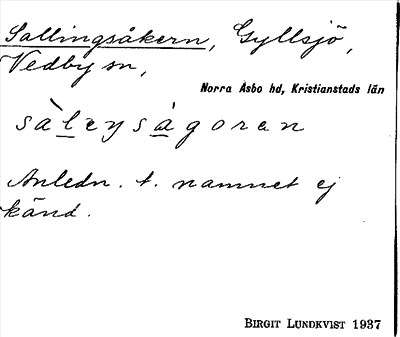 Sallingsåkern, Gyllsjö,
Vedby sn,
Norra Åsbo hd, Kristianstads län
sàleysågoren
Anledn. t. namnet ej
känd.
BIRGIT LUNDKVIST 1937